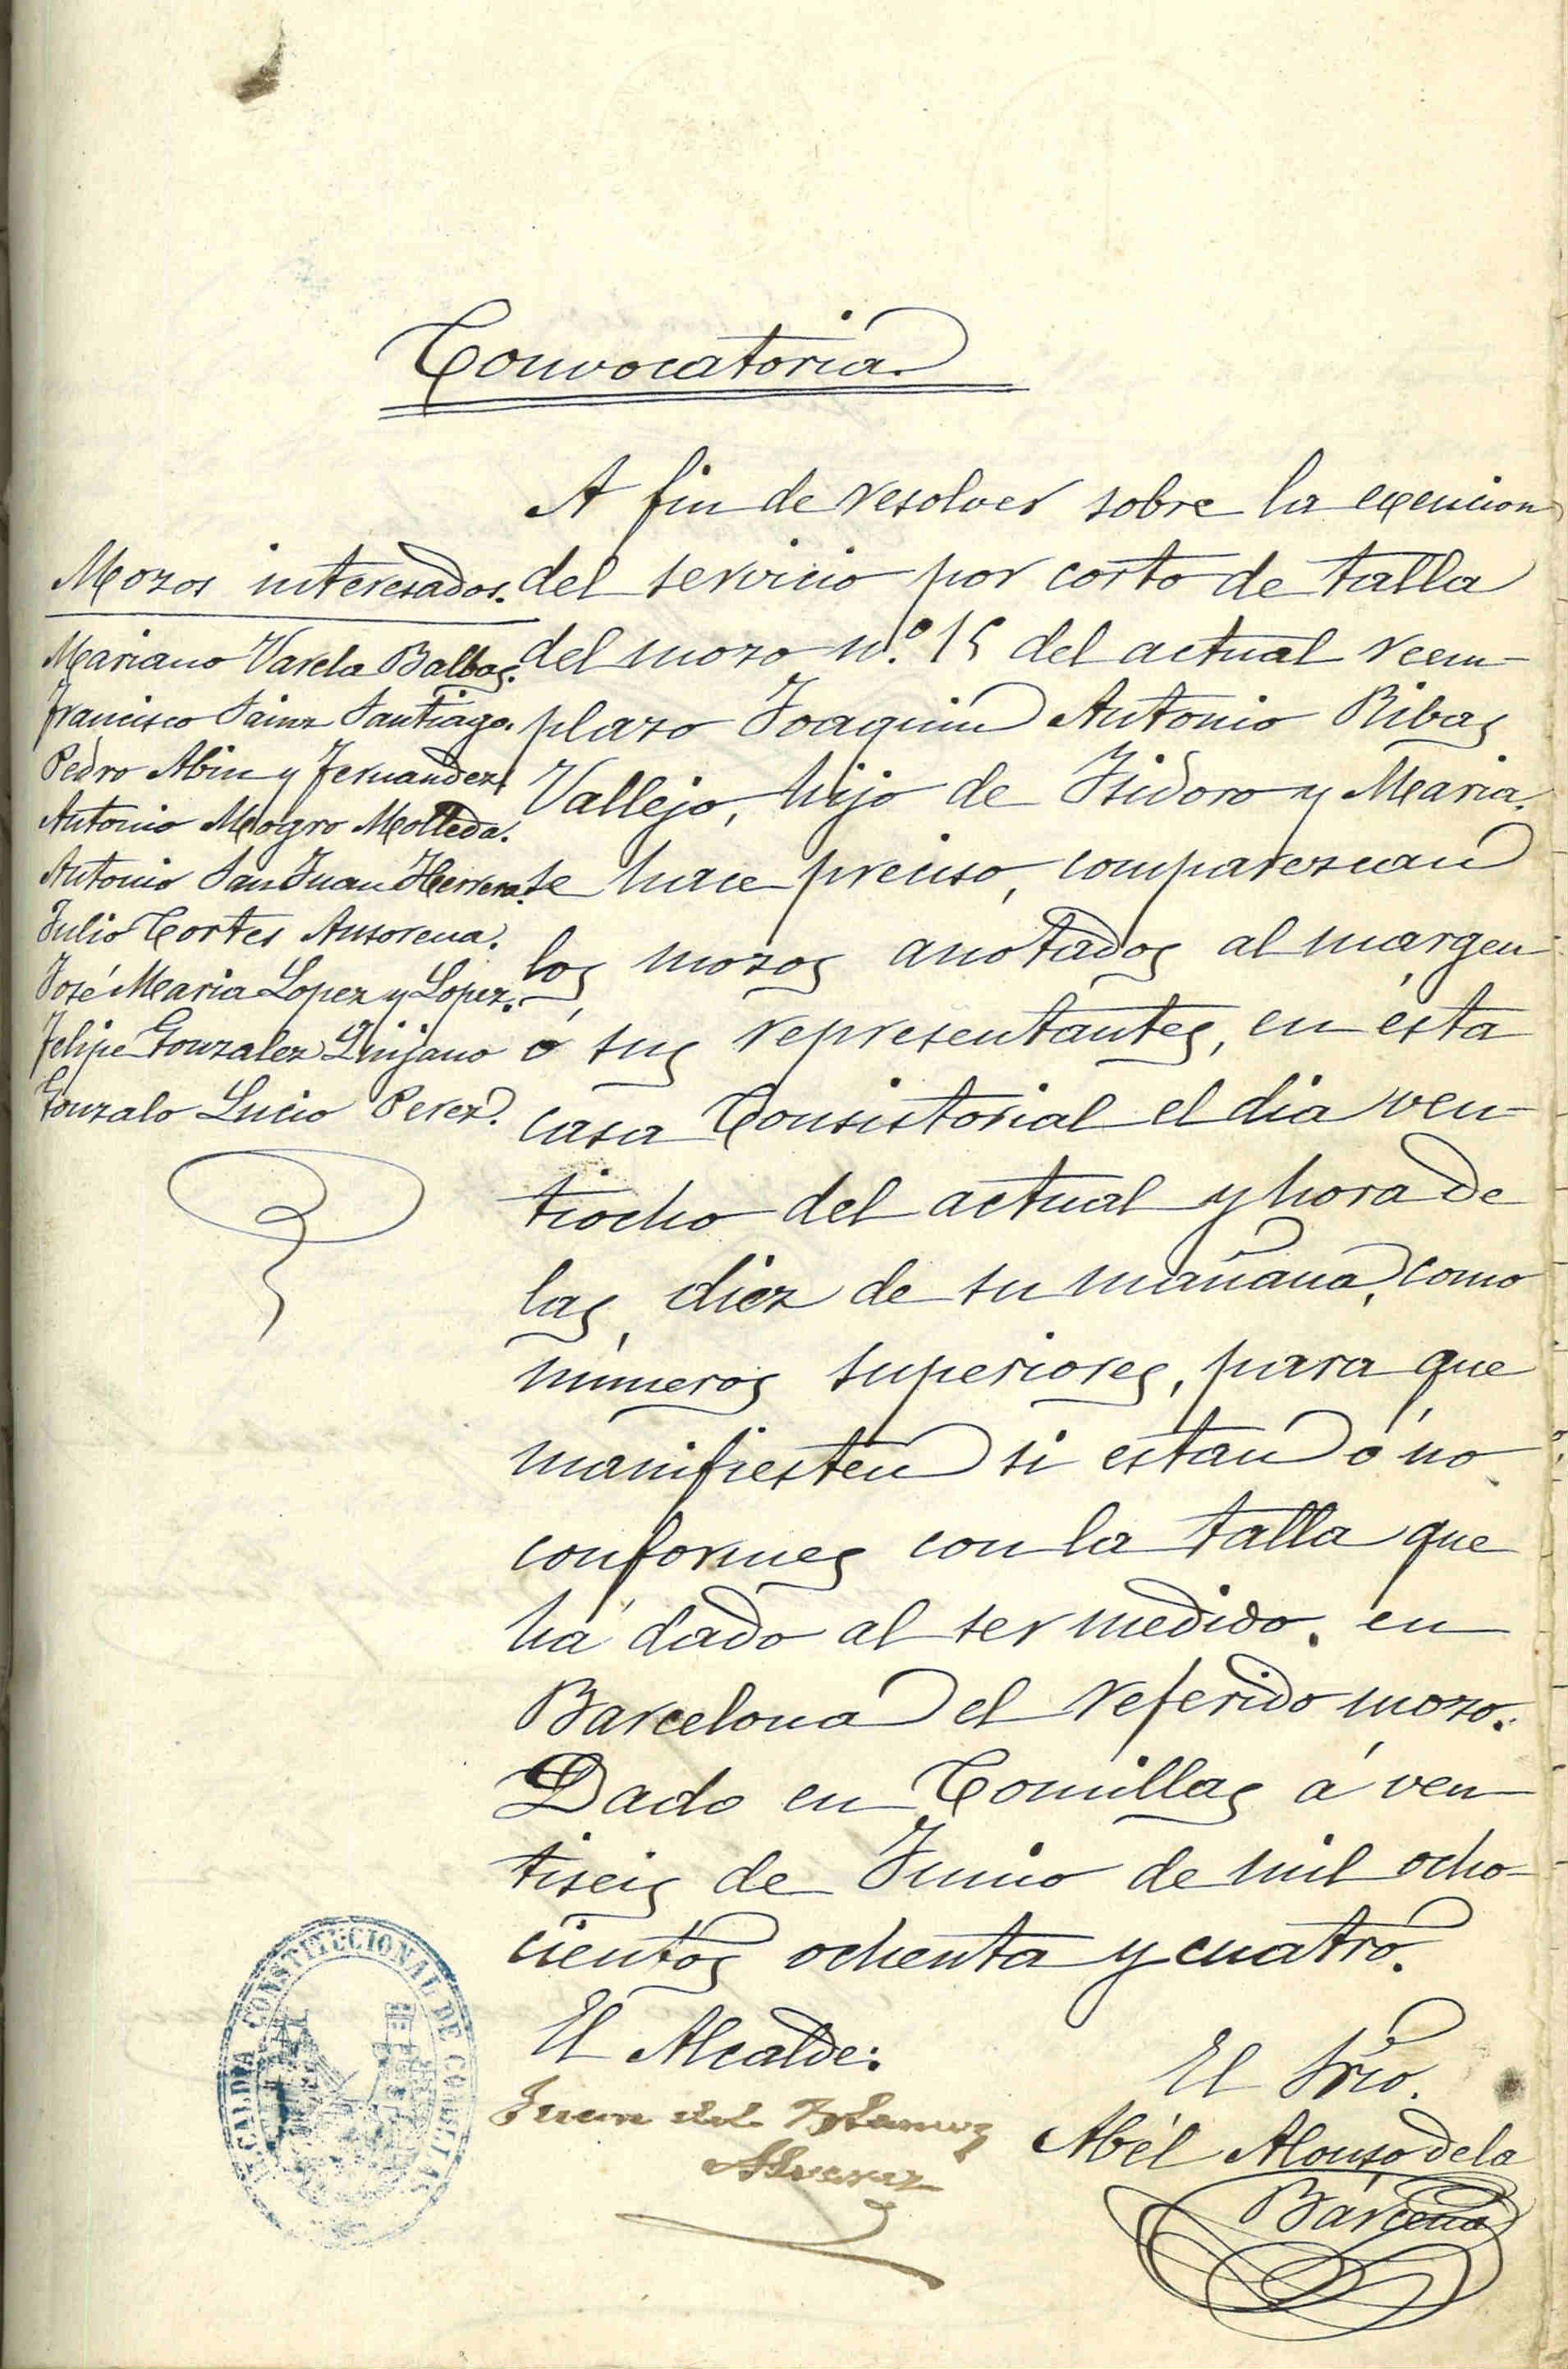 Convocatoria.
A fin de resolver sobre la exencion
del servicio por corto de talla
del mozo n.º 15 del actual reem-
plazo Joaquin Antonio Ribas
Vallejo, hijo de Isidoro y Maria.
se hace preciso, comparezcan
los mozos anotados al margen
ó sus representantes, en ésta
casa Consistorial el dia ven-
tiocho del actual y hora de
las diez de su mañana, como
números superiores, para que
manifiesten si estan ó no
conformes con la talla que
há dado al ser medido. en
Barcelona el referido mozo.
Dado en Comillas á ven-
tiseis de Junio de mil ocho-
cientos ochenta y cuatro.
Mozos interesados.
Mariano Varela Balbas.
Francisco Sainz Santiago.
Pedro Abin y Fernandez
Antonio Mogro Molleda.
Antonio San Juan Herrera.
Julio Cortes Ansorena.
José Maria Lopez y Lopez.
Felipe Gonzalez Quijano
Gonzalo Lucio Perez.
El Alcalde:
Juan del
Alvarez
El Srio.
Abél Alonso de la
Bárcena
ALCALDIA CONSTITUCIONAL DE COMILLAS